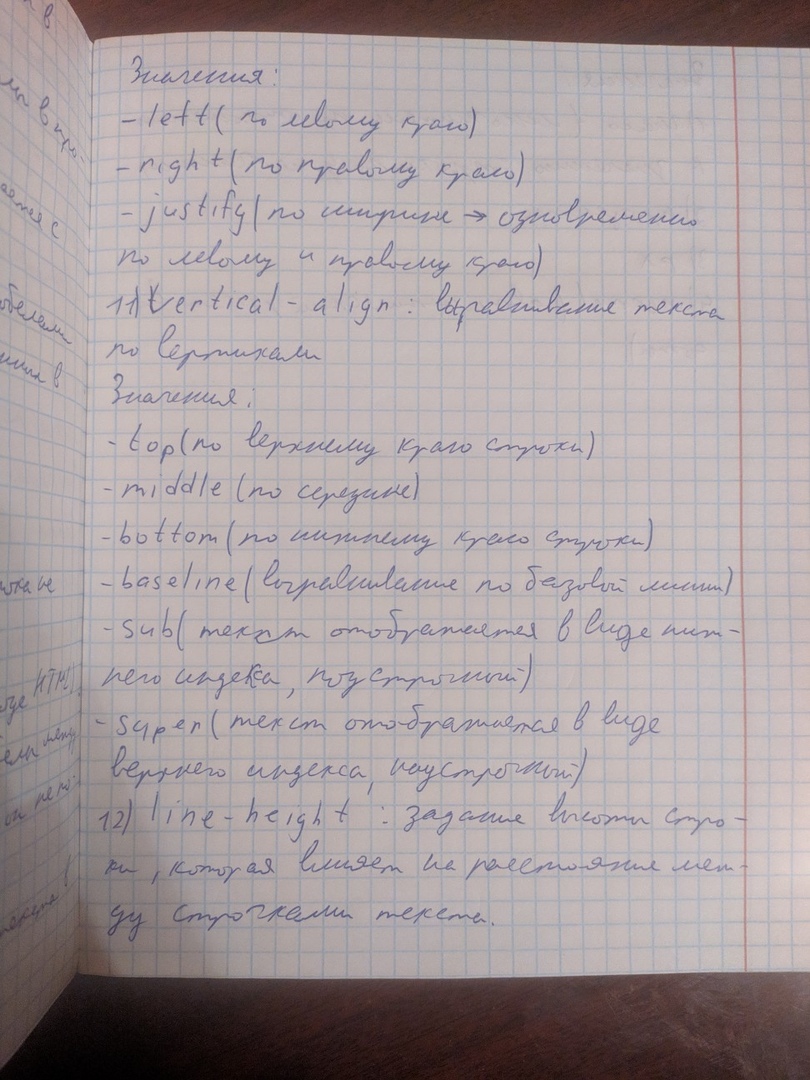 Значения:
- left (по левому краю)
- right (по правому краю)
- justify (по ширине → одновременно
по левому и правому краю)
11) vertical-align: выравнивание текста
по вертикали
Значения:
- top (по верхнему краю строки)
- middle (по середине)
- bottom (по нижнему краю строки)
- baseline (выравнивание по базовой линии)
- sub (текст отображается в виде ниж-
него индекса, подстрочный)
- super (текст отображается в виде
верхнего индекса, надстрочный)
12) line-height: задание высоты стро-
ки, которая влияет на расстояние меж-
ду строчками текста.